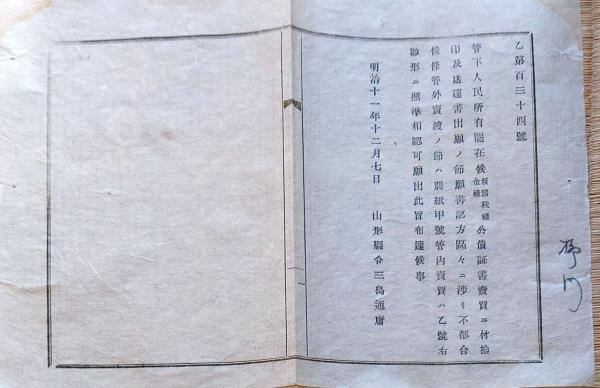 乙第百三十四號
管下人民所有罷在候新舊秩祿金祿公債証書賣買ニ付撿
印及送達書出願ノ節願書認方區々ニ涉リ不都合
候條管外賣渡ノ節ハ別紙甲號管內賣買ハ乙號右
雛形ニ照準相認可願出此旨布達候事
明治十一年十二月七日　山形縣令三島通庸